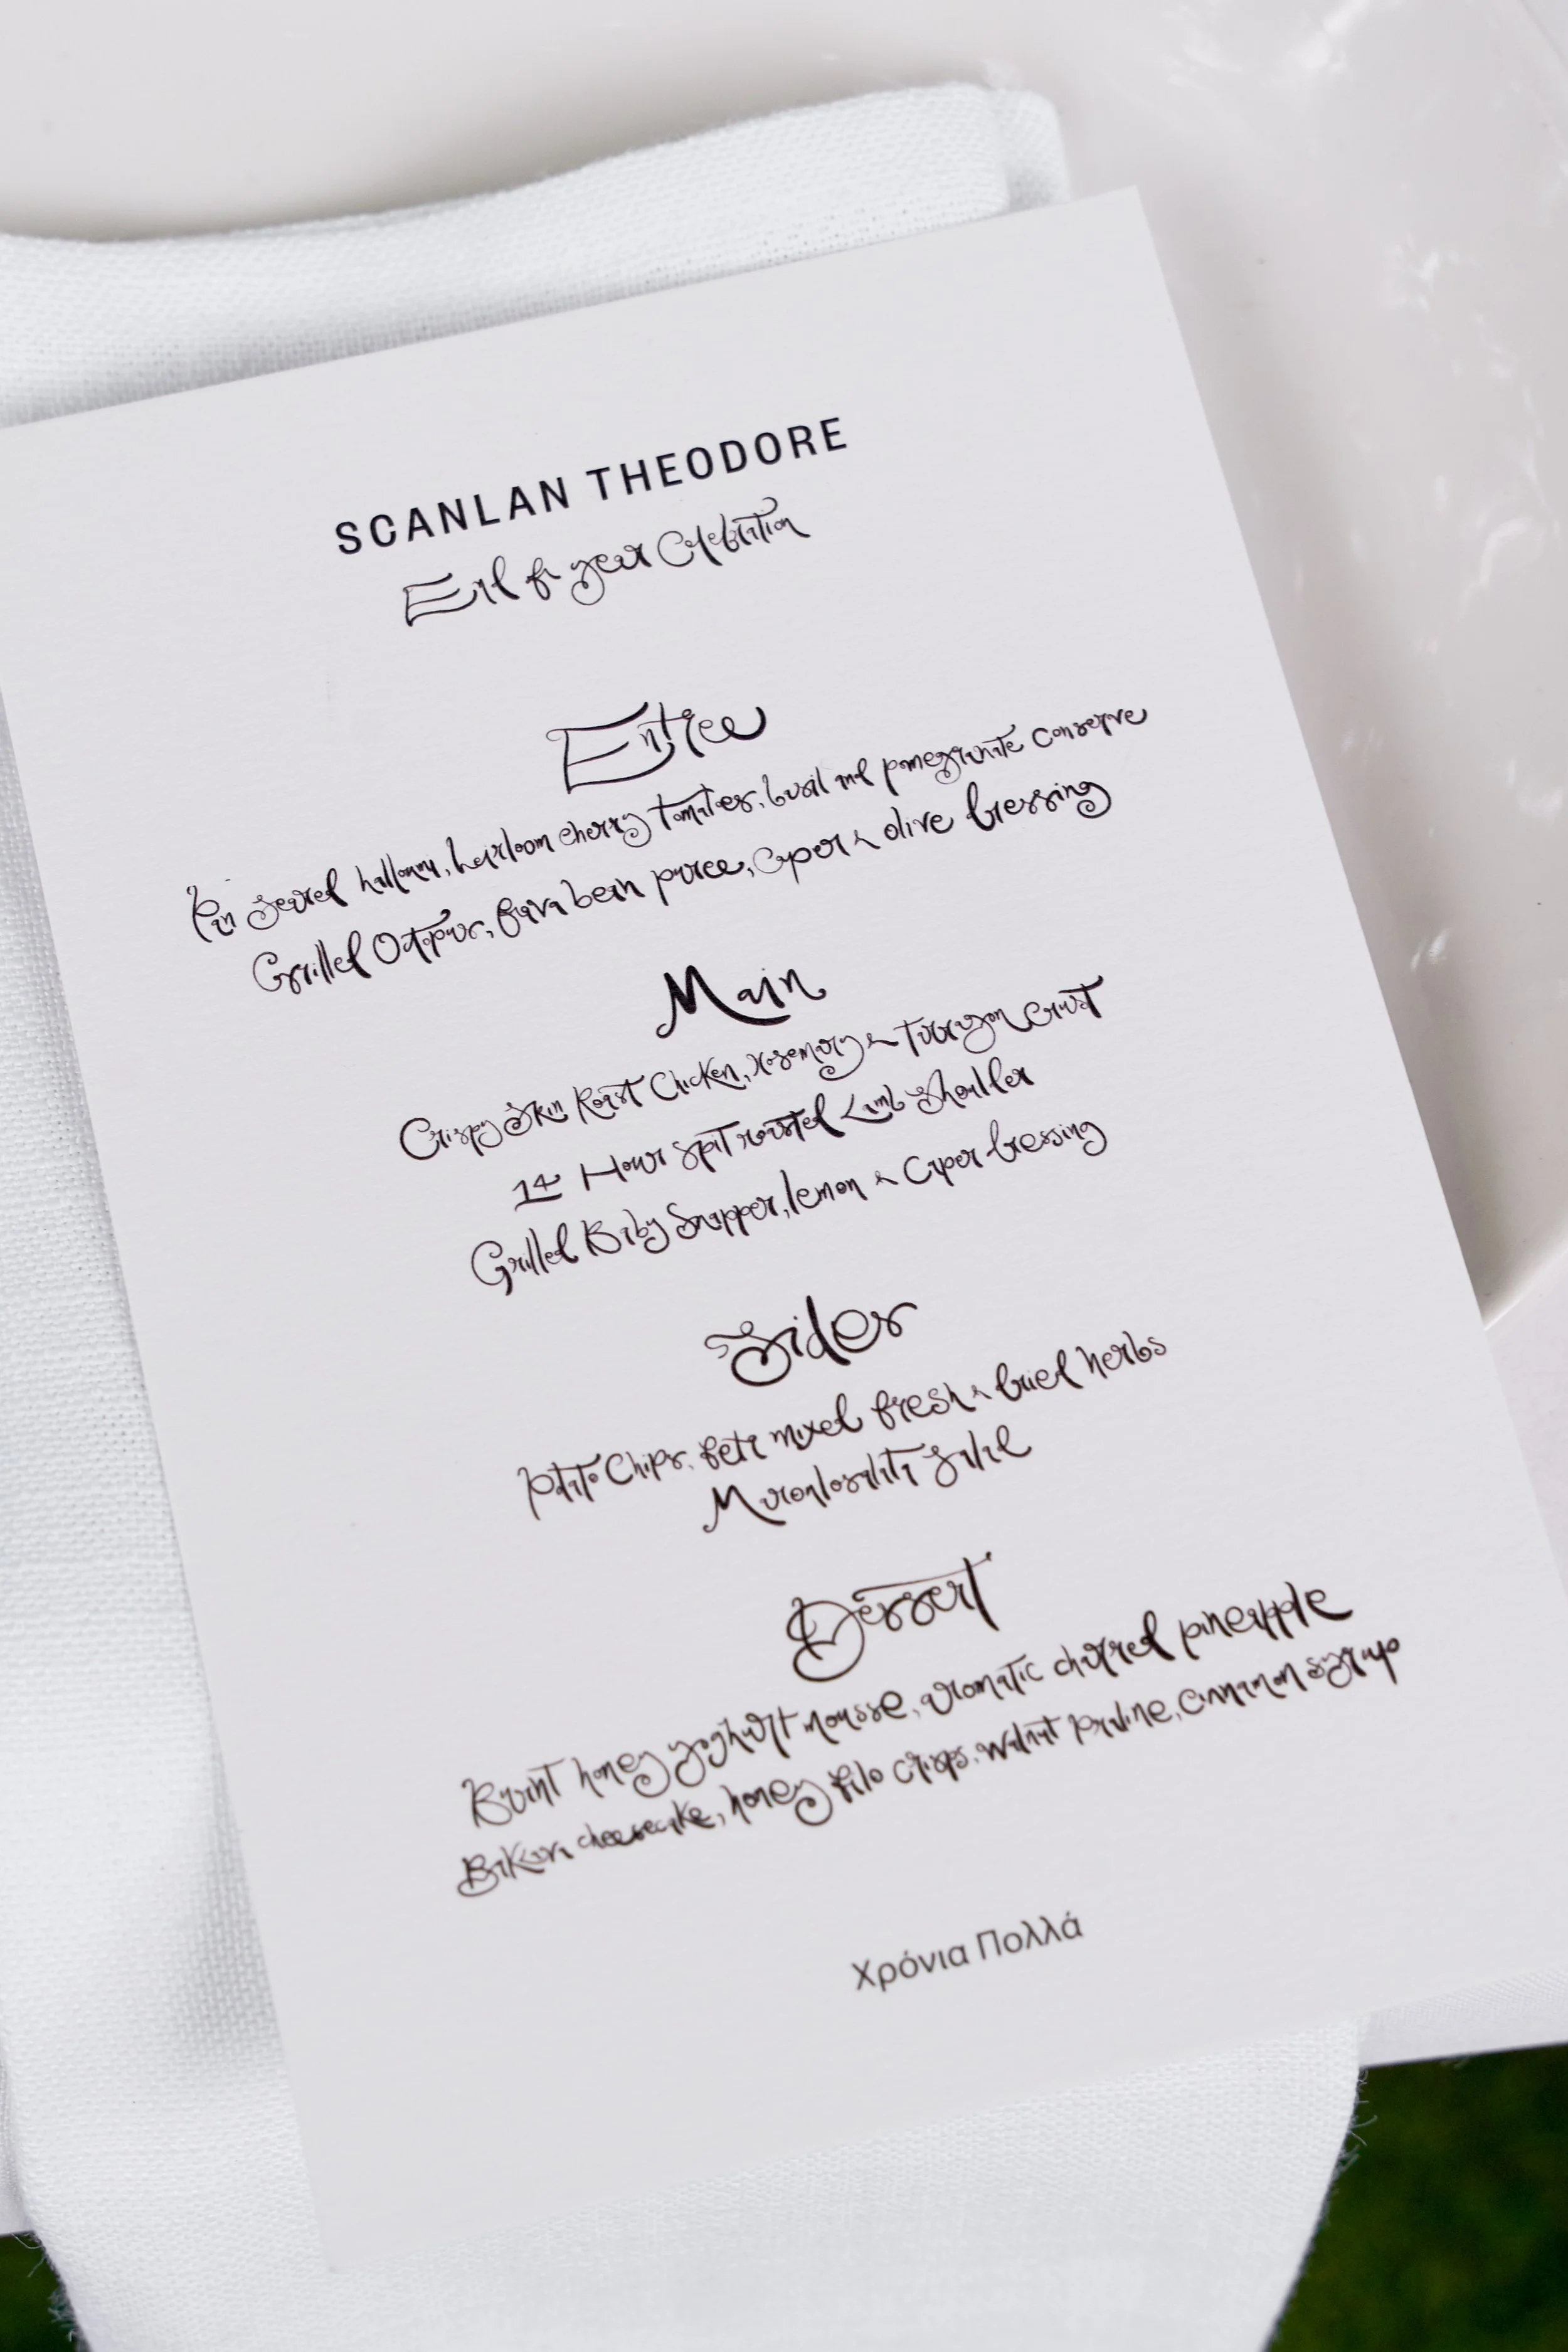 SCANLAN THEODORE
End of year Celebration
Entree
Pan seared halloumi, heirloom cherry tomatoes, basil and pomegranate conserve
Grilled Octopus, fava bean puree, caper & olive dressing
Main
Crispy Skin Roast Chicken, rosemary & tarragon crust
14 Hour spit roasted Lamb Shoulder
Grilled Baby Snapper, lemon & Caper dressing
Sides
Potato Chips, feta mixed fresh & dried herbs
Maroulosalata Salad
Dessert
Burnt honey yoghurt mousse, aromatic charred pineapple
Baklava cheesecake, honey filo crisps, walnut praline, cinnamon syrup
Χρόνια Πολλά